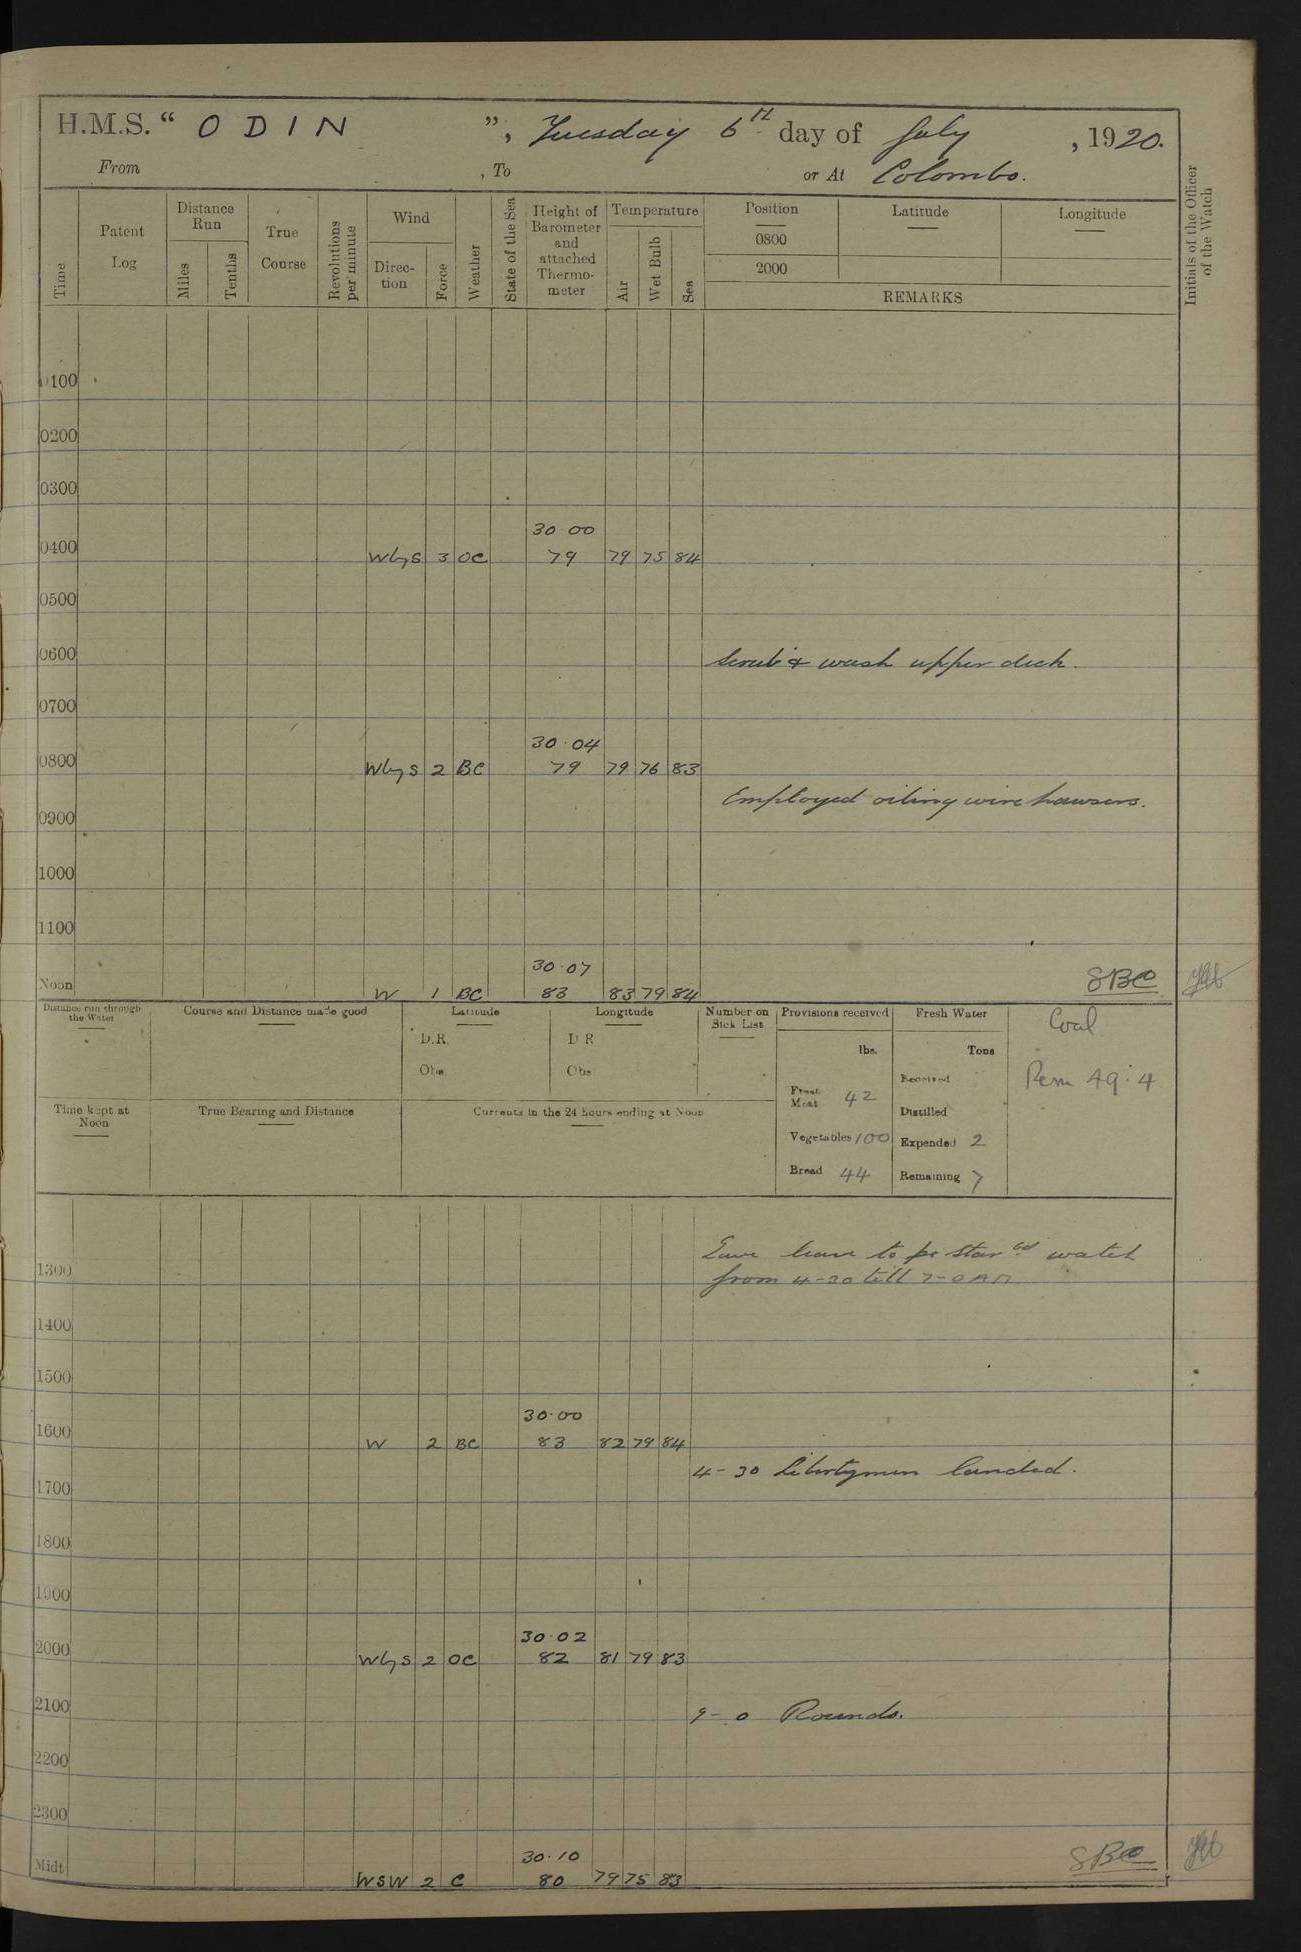 H.M.S. “ ODIN ”, Tuesday 6th day of July, 1920.
From , To or At Colombo.
Time
Patent Log
Distance Run
Miles
Tenths
True Course
Revolutions per minute
Wind
Direc-tion
Force
Weather
State of the Sea
Height of Barometer and attached Thermo-meter
Temperature
Air
Wet Bulb
Sea
Position Latitude Longitude
0800
2000
REMARKS
Initials of the Officer of the Watch
0100
0200
0300
30 00
0400 WbyS 3 OC 79 79 75 84
0500
0600 Scrub & wash upper deck.
0700
30.04
0800 WbyS 2 BC 79 79 76 83
Employed oiling wire hawsers.
0900
1000
1100
30.07
Noon W 1 BC 83 83 79 84
SBC
Distance run through the Water
Course and Distance made good
Latitude
D.R.
Obs
Longitude
D R
Obs
Number on Sick List
Provisions received
lbs.
Fresh Meat 42
Vegetables 100
Bread 44
Fresh Water
Tons
Received
Distilled
Expended 2
Remaining 7
Coal
Rem 49.4
Time kept at Noon
True Bearing and Distance
Currents in the 24 hours ending at Noon
Gave leave to star bd watch
1300 from 4-30 till 7-0 AM
1400
1500
30.00
1600 W 2 BC 83 82 79 84
4-30 Libertymen landed.
1700
1800
1900
30.02
2000 WbyS 2 OC 82 81 79 83
2100 9-0 Rounds.
2200
2300
30.10
Midt WSW 2 C 80 79 75 83
SBC